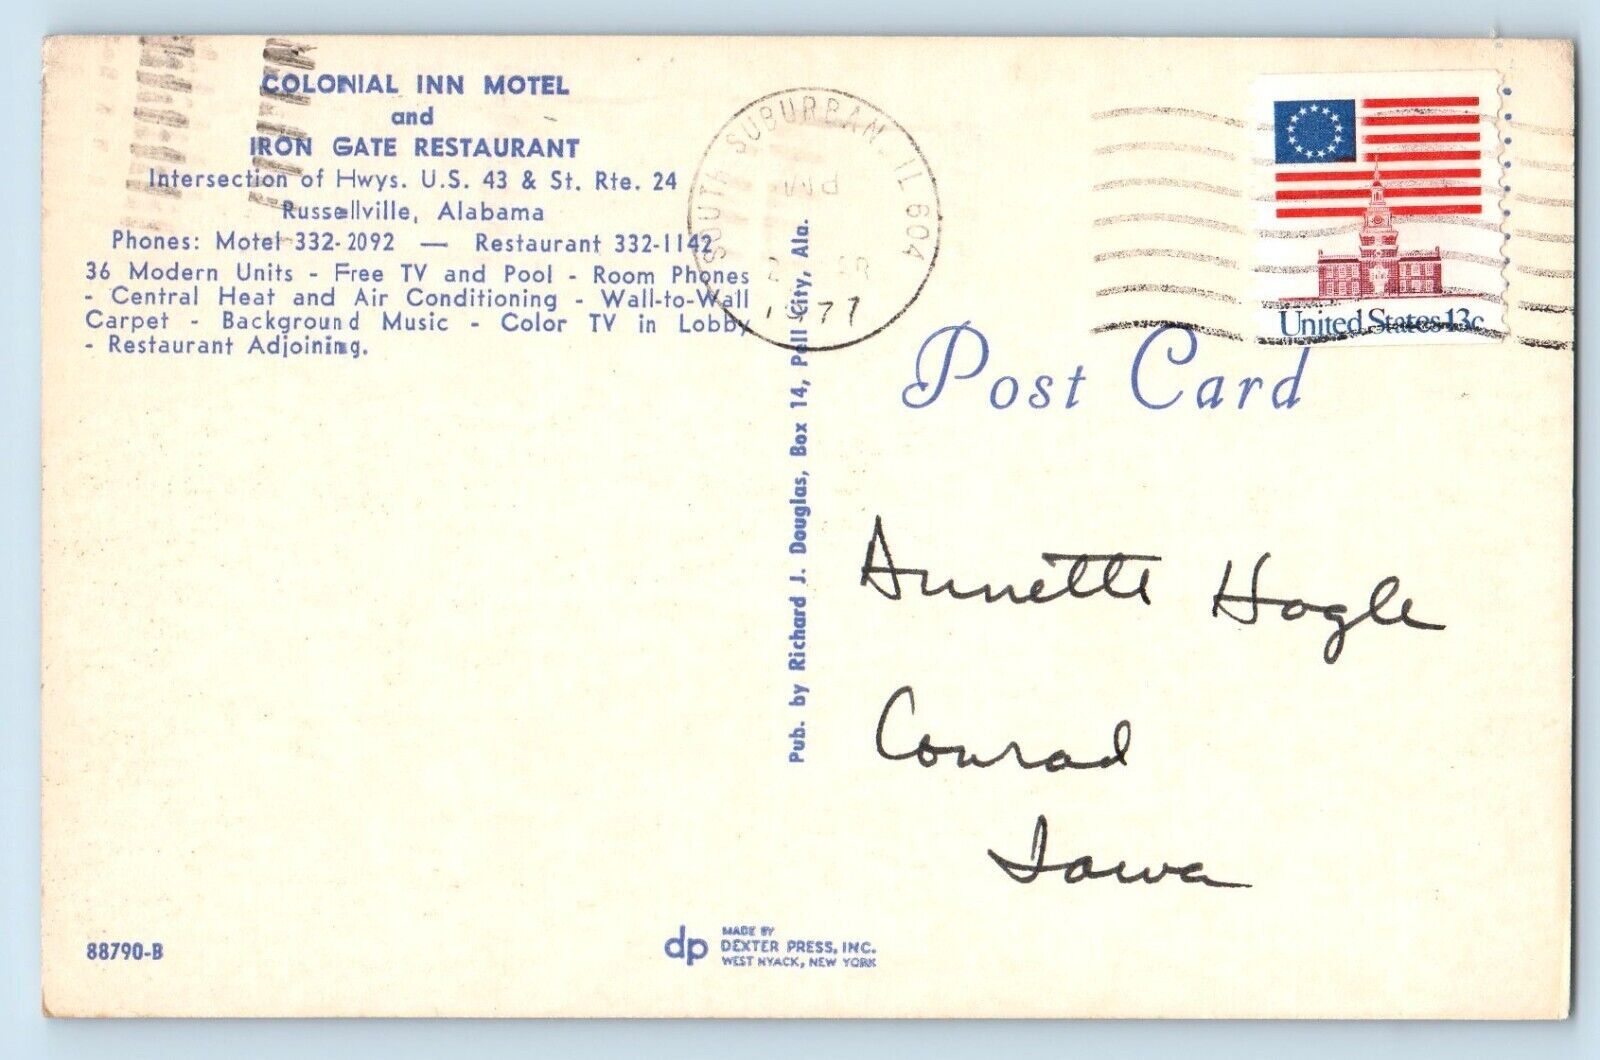 COLONIAL INN MOTEL
and
IRON GATE RESTAURANT
Intersection of Hwys. U.S. 43 & St. Rte. 24
Russellville, Alabama
Phones: Motel 332-2092 — Restaurant 332-1142
36 Modern Units - Free TV and Pool - Room Phones
- Central Heat and Air Conditioning - Wall-to-Wall
Carpet - Background Music - Color TV in Lobby
- Restaurant Adjoining.
SOUTH SUBURBAN, IL 604
PM
1977
United States 13c
Post Card
Pub. by Richard J. Douglas, Box 14, Pell City, Ala.
Annette Hogle
Conrad
Iowa
88790-B
dp
MADE BY
DEXTER PRESS, INC.
WEST NYACK, NEW YORK